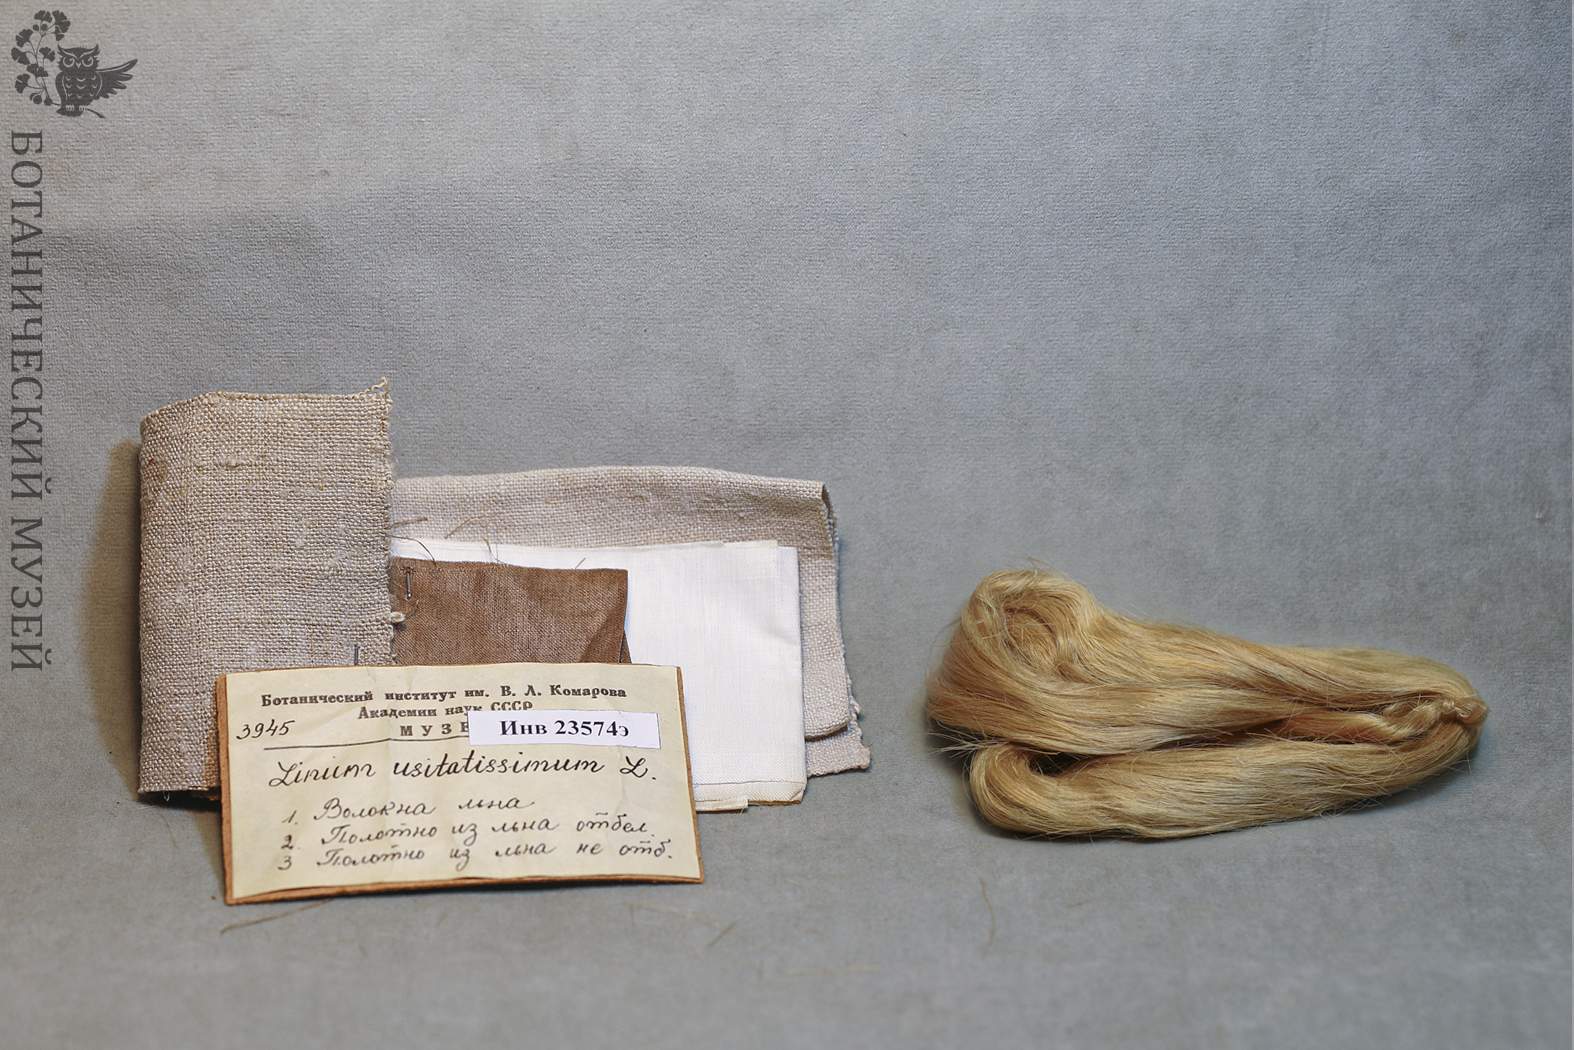 БОТАНИЧЕСКИЙ МУЗЕЙ
Ботанический институт им. В. Л. Комарова
Академии наук СССР
3945
МУЗЕ
Инв 23574э
Linum usitatissimum L.
1. Волокна льна
2. Полотно из льна отбел.
3 Полотно из льна не отб.